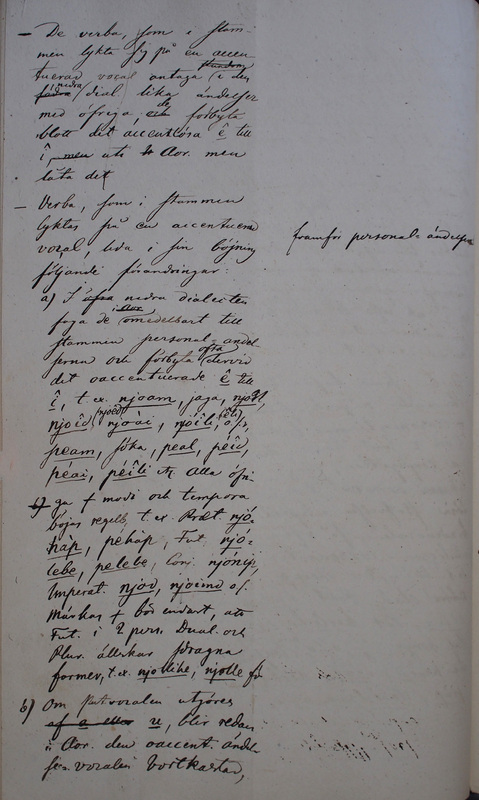 — De verba, som i stam-
men lykta sig på en accen-
tuerad vocal antaga i den
stundom
nedra dial. lika ändelser
med öfriga, de förbyta
blott det accentlösa ê till
î, men uti Aor. men
låta det
— Verba, som i stammen
lyktas på en accentuerad
vocal, lida i sin böjning
framför personal-ändelser
följande förändringar:
a) I nedra dialecten
i Aor.
foga de omedelbart till
stammen personal-ändel-
serna och förbyta ofta dervid
det oaccentuerade ê till
î, t. ex. njoam, jaga, njoal,
njoîd, njoài, njoîli,
peam, söka, peal, péîd,
péai, péîli etc. Alla öfri-
ga modi och tempora
böjas regelb. t. ex. Præt. njó-
hàp, pehap, Fut. njó-
lebe, pelebe, Conj. njónip,
Imperat. njod, njoimd o.s.
Märkas bör endast, att
Fut. i 2 pers. Dual. och
Plur. älskar sdragna
former, t. ex. njollihe, njolle
b) Om slutvocalen utgöres
af a eller u, blir redan
i Aor. den oaccent. ändel-
se-vocalen bortkastad,